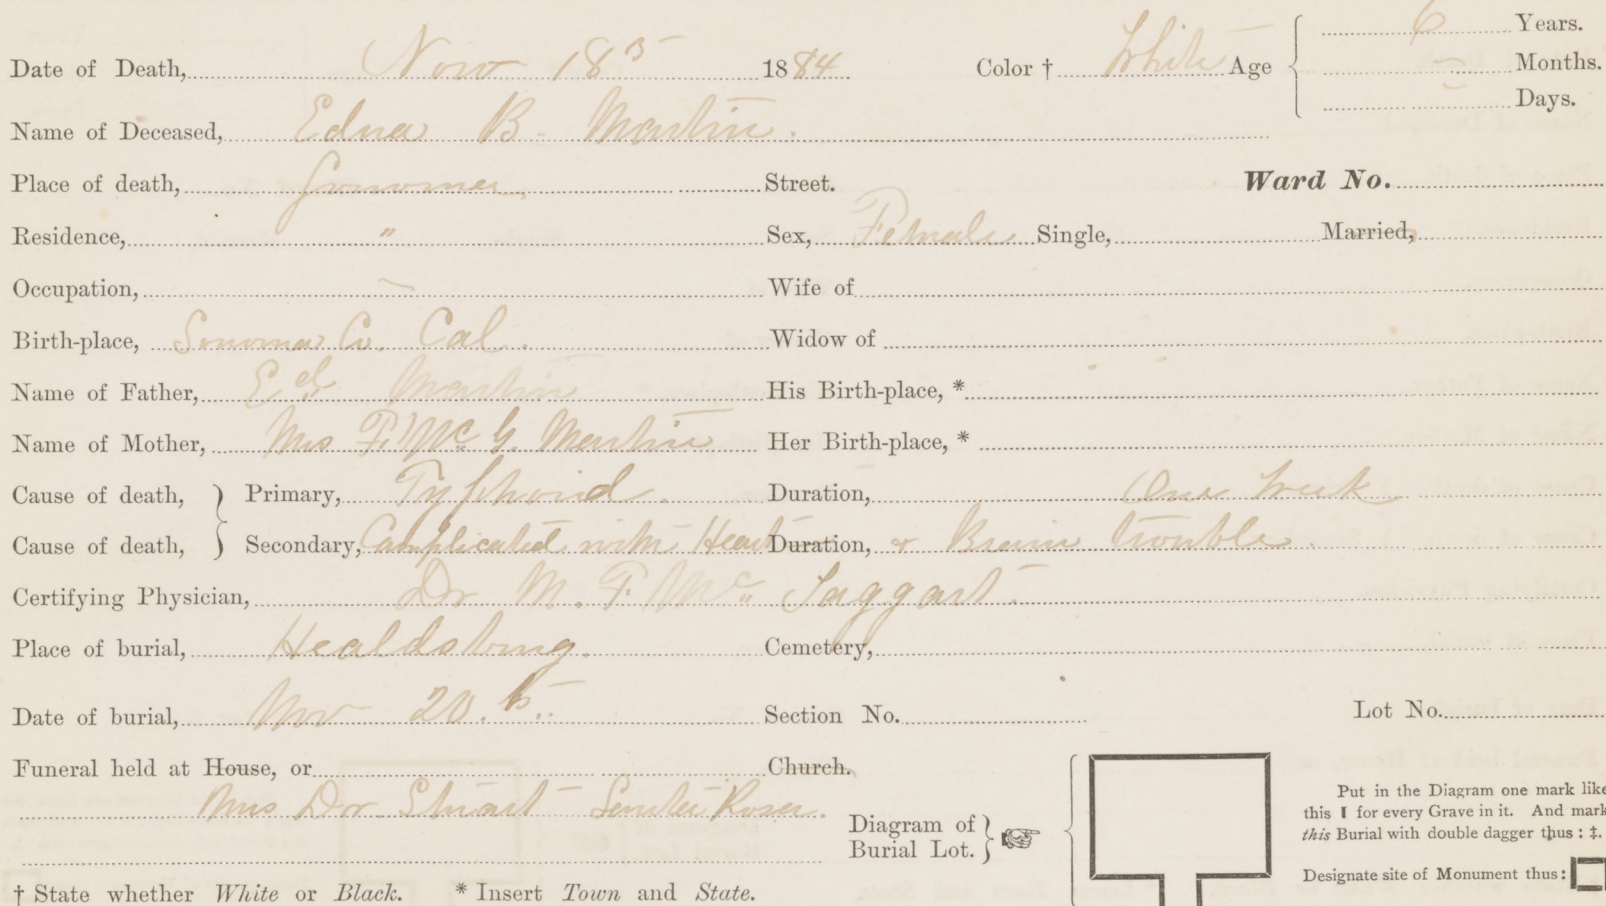 Date of Death, Nov 18th 1884 Color † White Age 6 Years.
Months.
Days.
Name of Deceased, Edna B. Martin.
Place of death, Sonoma Street. Ward No.
Residence, " Sex, Female Single, Married,
Occupation, — Wife of
Birth-place, Sonoma Co. Cal. Widow of
Name of Father, Ed. Martin His Birth-place, *
Name of Mother, Mrs F. McG. Martin Her Birth-place, *
Cause of death, Primary, Tyfhoid. Duration, One Week
Cause of death, Secondary, Complicated with Heart Duration, & Brain trouble.
Certifying Physician, Dr M. F. Mc Taggart.
Place of burial, Healdsburg. Cemetery,
Date of burial, Nov 20.th Section No. Lot No.
Funeral held at House, or Church.
Mrs Dr Stuart Santa Rosa.
Diagram of
Burial Lot.
Put in the Diagram one mark like
this I for every Grave in it. And mark
this Burial with double dagger thus : ‡.
Designate site of Monument thus :
† State whether White or Black. * Insert Town and State.